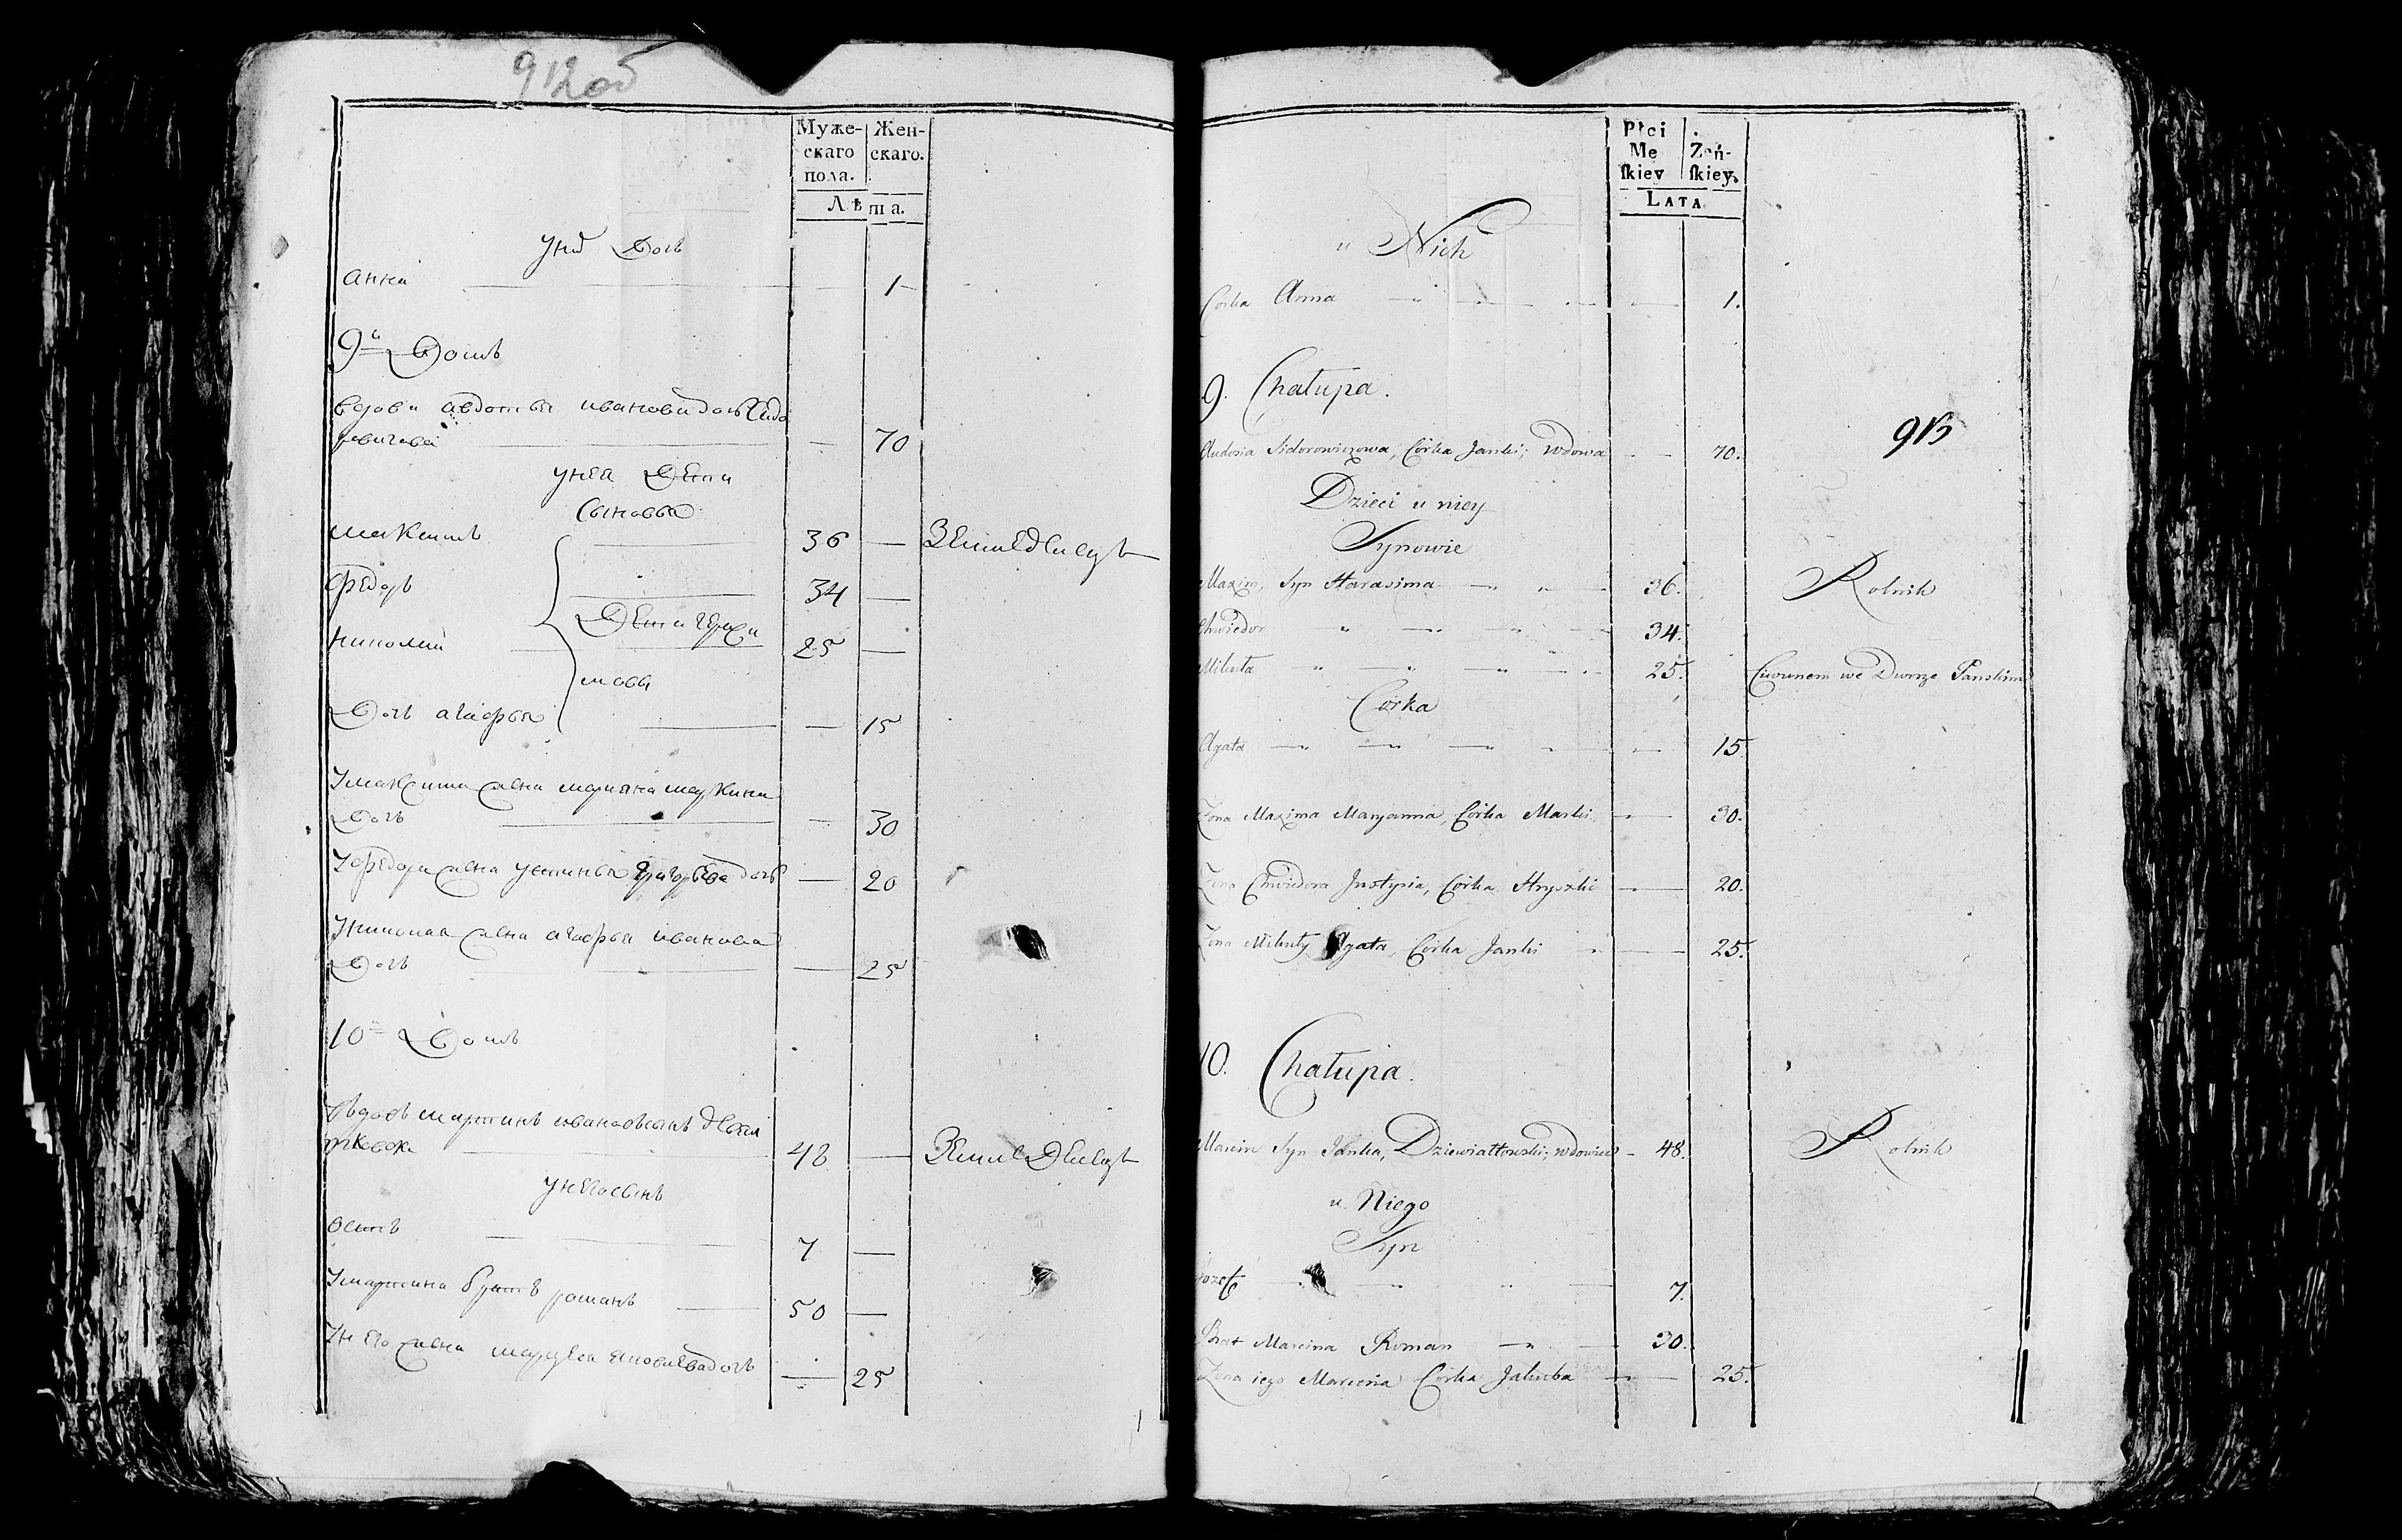 912об
Муже- Жен-
скаго скаго.
пола.
Лѣта.
у нихъ Дочь
анна — 1
9й Домъ
вдова авдотья иванова дочь Сидо
ровичева — 70
у нея Дети
Сыновья
максимъ — 36 — Земледелецъ
Федоръ — 34 —
Дети Гераси
николай — 25 —
мовы
Дочь агафья — 15
У максима жена марияна маркина
Дочь — 30
У федора жена устинья григорьева дочь — 20
У николая жена агафья иванова
Дочь — 25
10й Домъ
вдовъ мартинъ ивановъ сынъ
48 — Земледелецъ
у него сынъ
осипъ — 7 —
У мартина братъ романъ — 50 —
У него жена — дочь — 25
Płci
Mę Zeń-
ſkiey ſkiey.
LATA
u Nich
Corka Anna — 1.
9. Chałupa.
913
Audosia Sidorowiczowa, Córka Janki; Wdowa — 70.
Dzieci u niey
Synowie
Maxim, Syn Harasima — 36. Rolnik
Chwiedor " — " — 34.
Mikita — " — " — 25. Ciwunem we Dworze Panskim
Córka
Agata — 15
Zona Maxima Maryanna, Córka Marki — 30.
Zona Chwiedora Justynia, Córka Hryszki — 20.
Zona Mikity Agata, Córka Janki — 25.
10. Chałupa.
Marcin Syn Janka, Dziewiałtowski; wdowiec — 48. Rolnik
u Niego
Syn
Jozef — 7.
Brat Marcina Roman — 30.
Zona iego Córka Jakuba — 25.